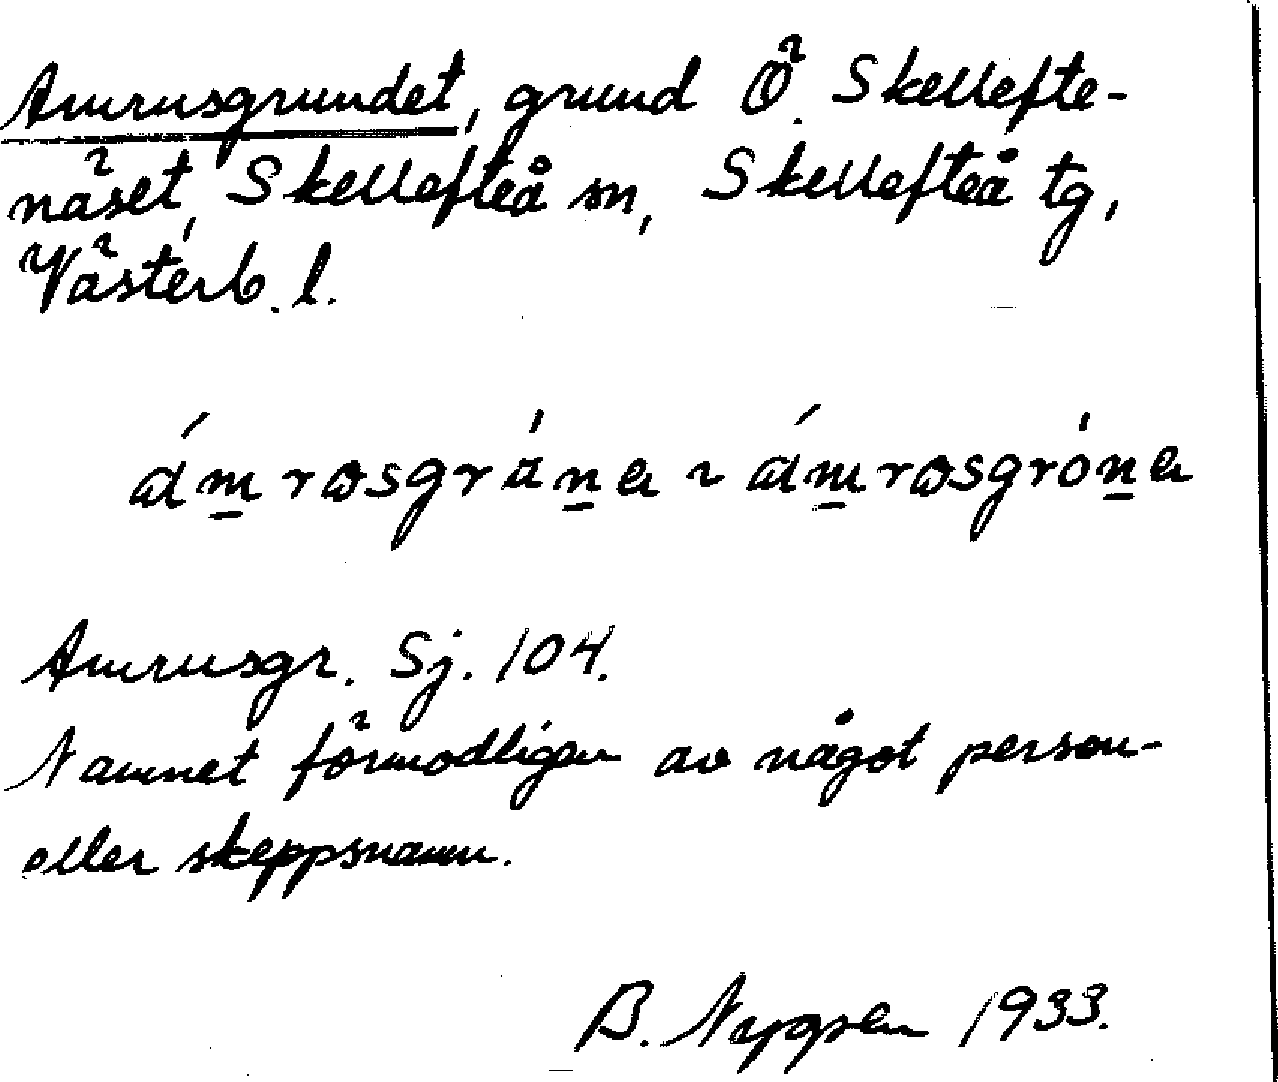 Amrusgrundet, grund Ö. Skellefte-
näset, Skellefteå sn, Skellefteå tg,
Västerb. l.
ámrosgrána ~ ámrosgróna
Amrusgr. Sj. 104.
Namnet förmodligen av något person-
eller skeppsnamn.
B. 1933.